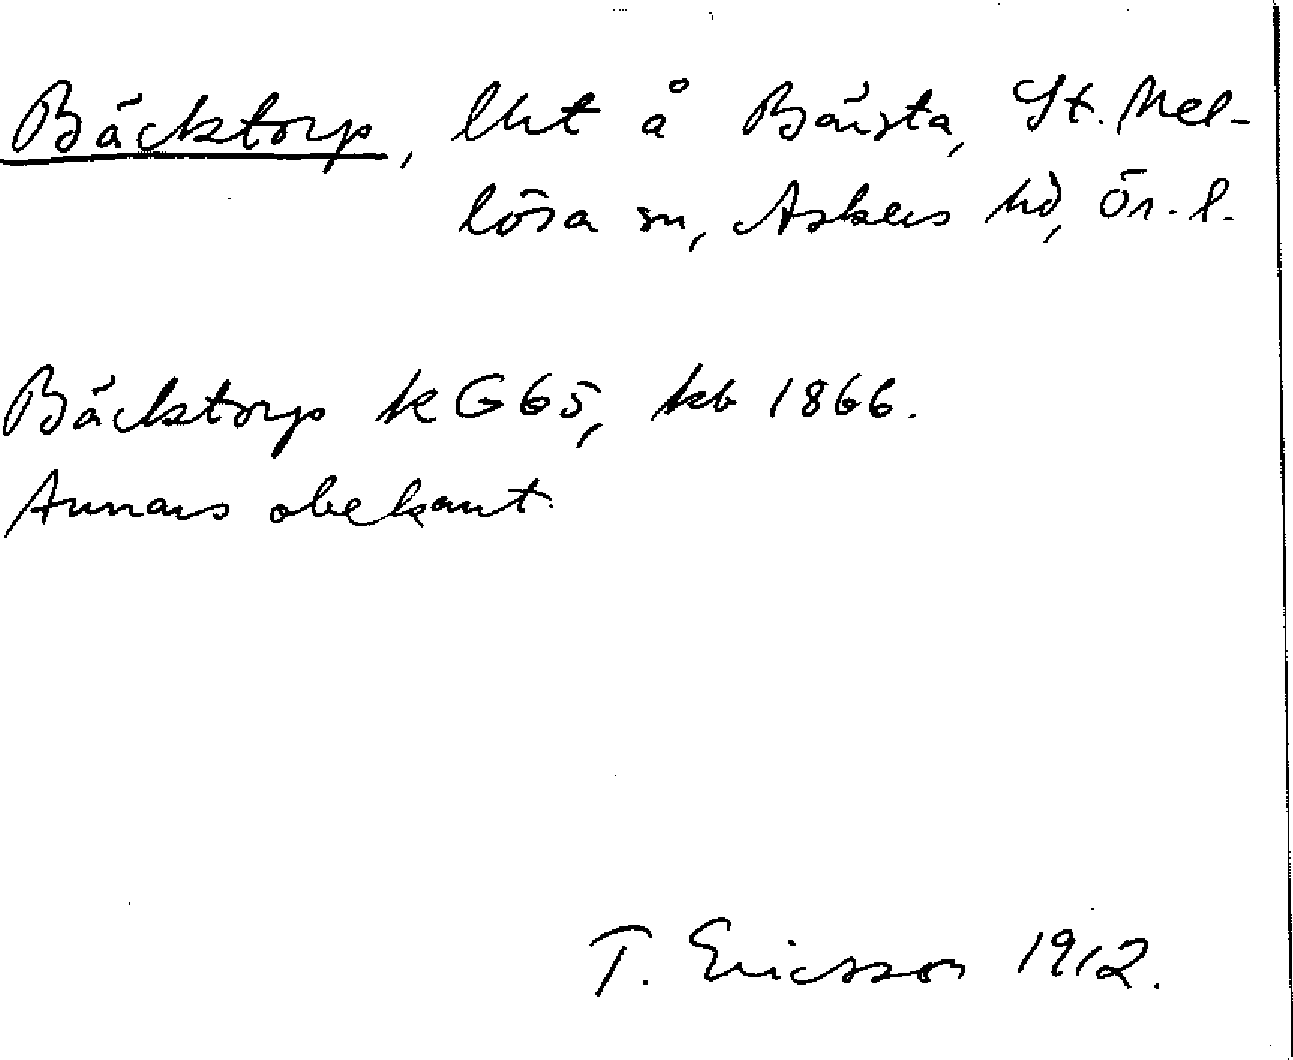 Bäcktorp, lht å Bärsta, St. Mel-
lösa sn, Askers hd, Ör. l.
Bäcktorp k G65, kb 1866.
Annars obekant.
T. Ericsson 1912.